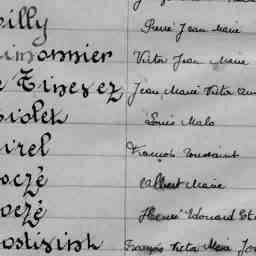 illy Pierre Jean Marie
imonnier Victor Jean Marie
e Tinevez Jean Marie Victor
iolet Louis Malo
irel François Toussaint
oczé Albert Marie
oczé Henri Edouard
ostisink François Victor Marie Jos